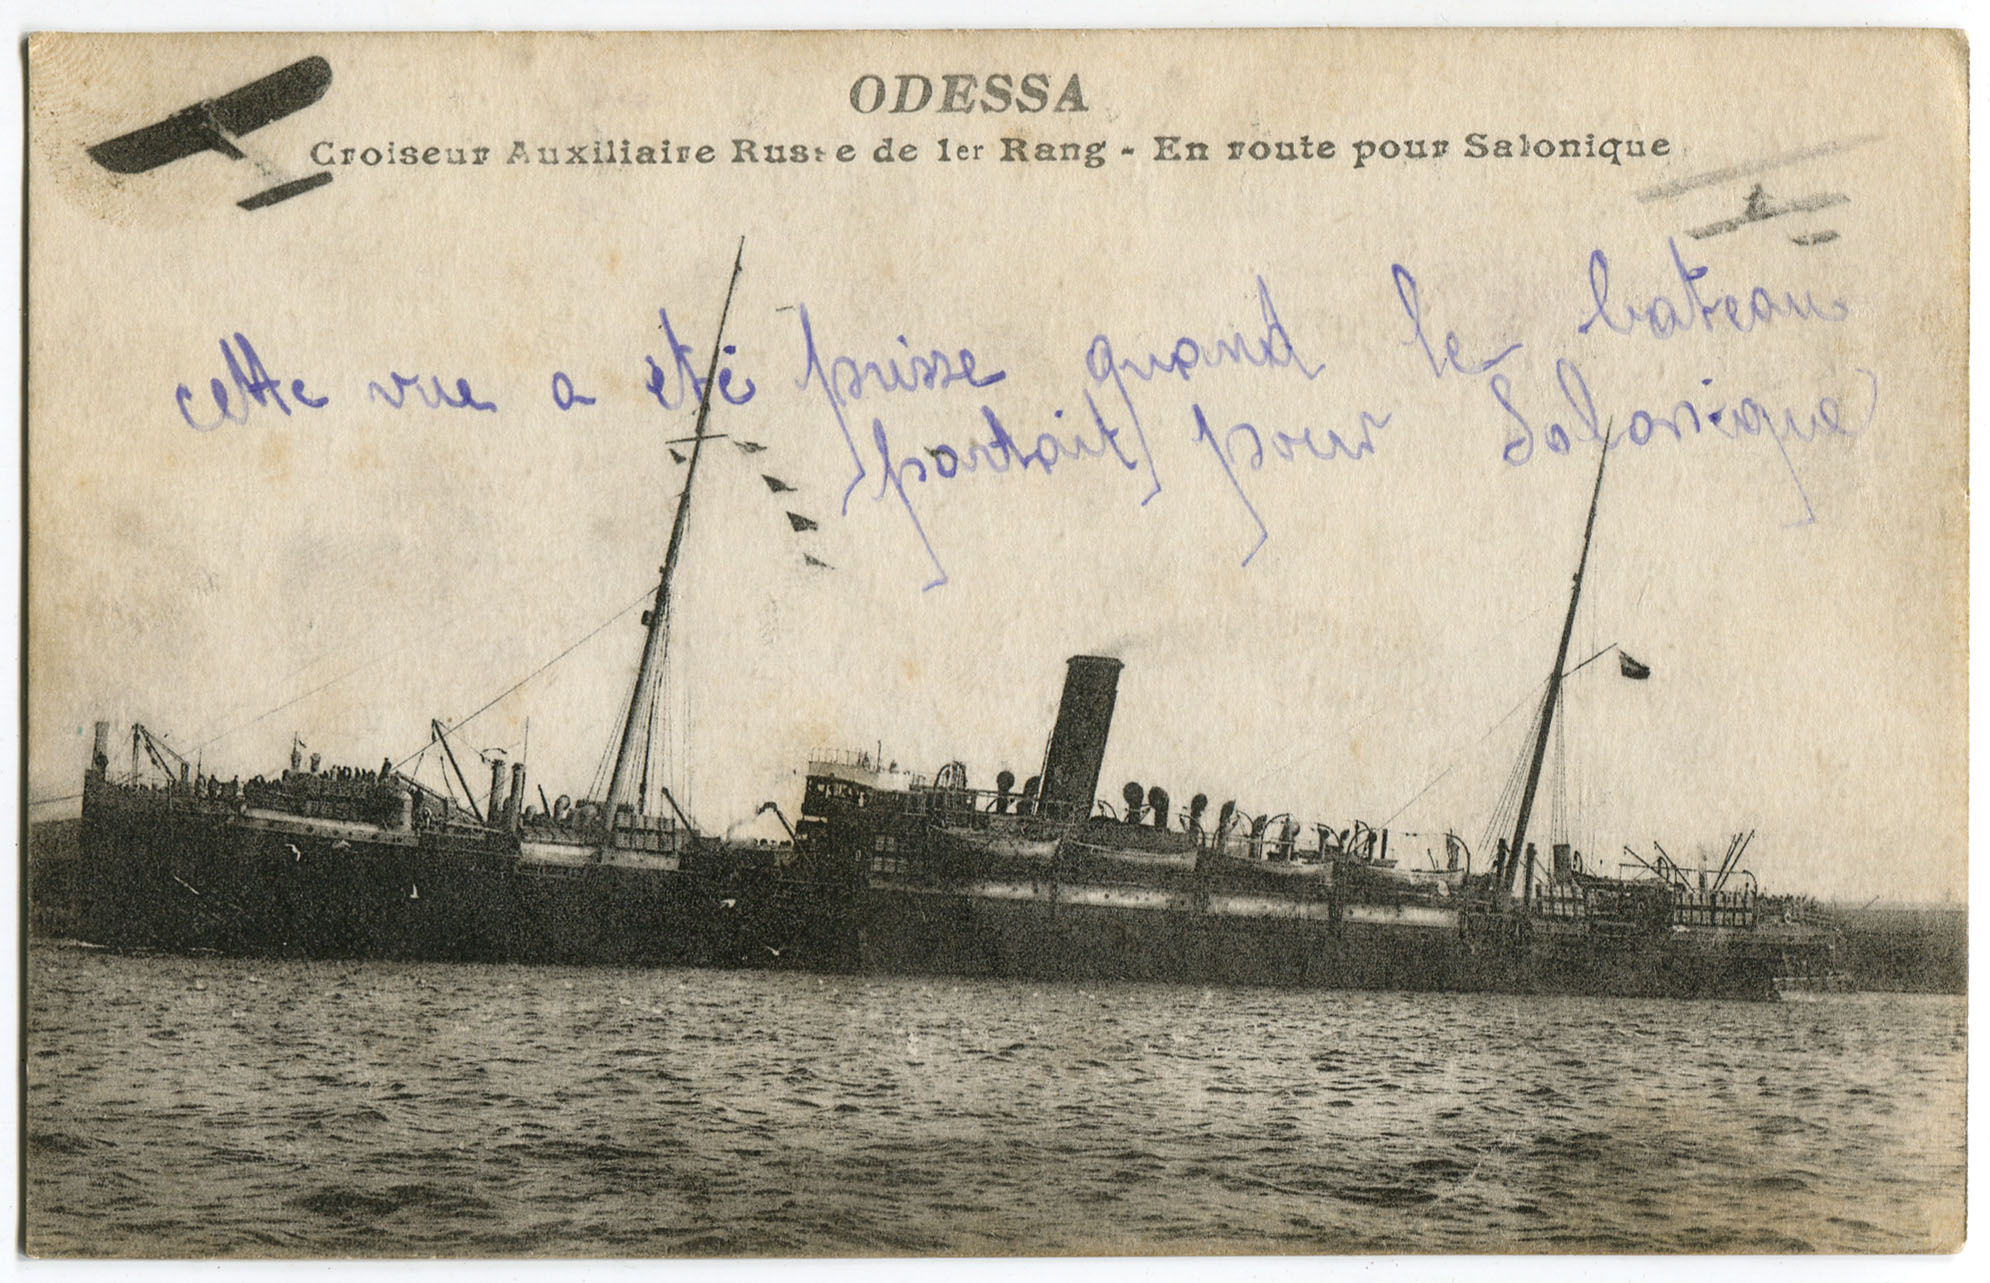 ODESSA
Croiseur Auxiliaire Russe de 1er Rang - En route pour Salonique
cette vue a été prisse quand le bateau
partait pour Salonique